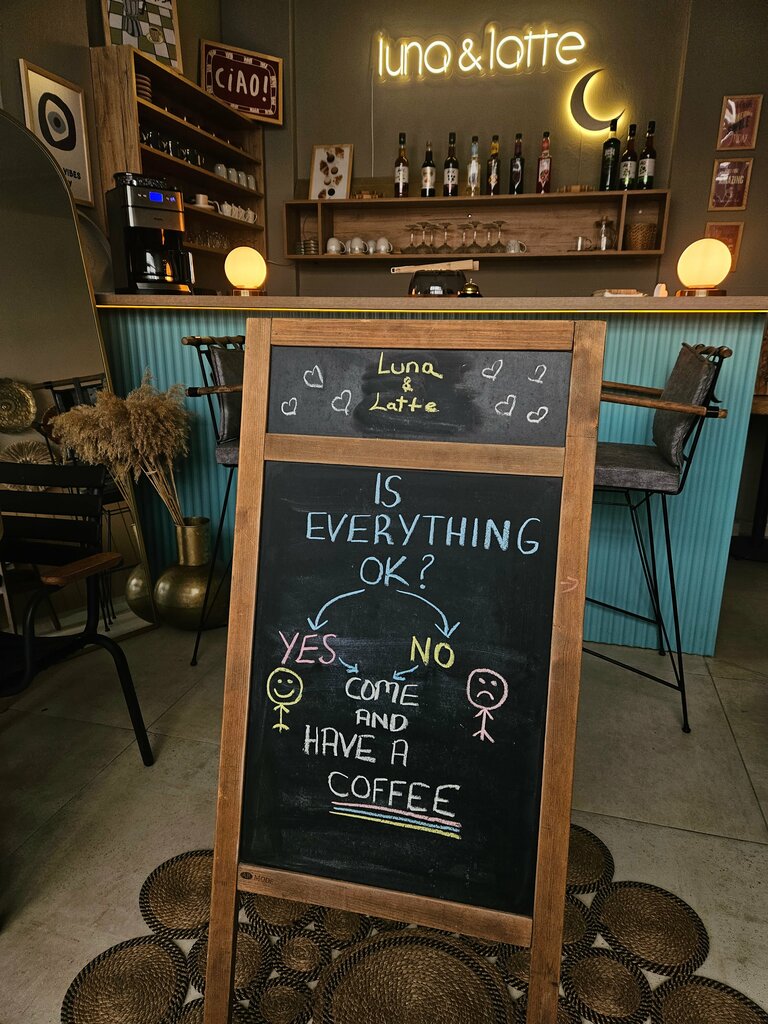 luna & latte
CiAO!
VIBES
AMAZING
Luna
&
Latte
IS
EVERYTHING
OK?
YES NO
COME
AND
HAVE A
COFFEE
MODE